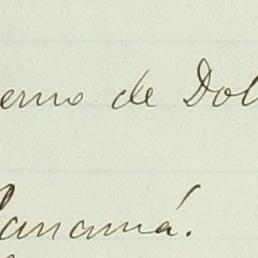 erno de Dol
Panamá.